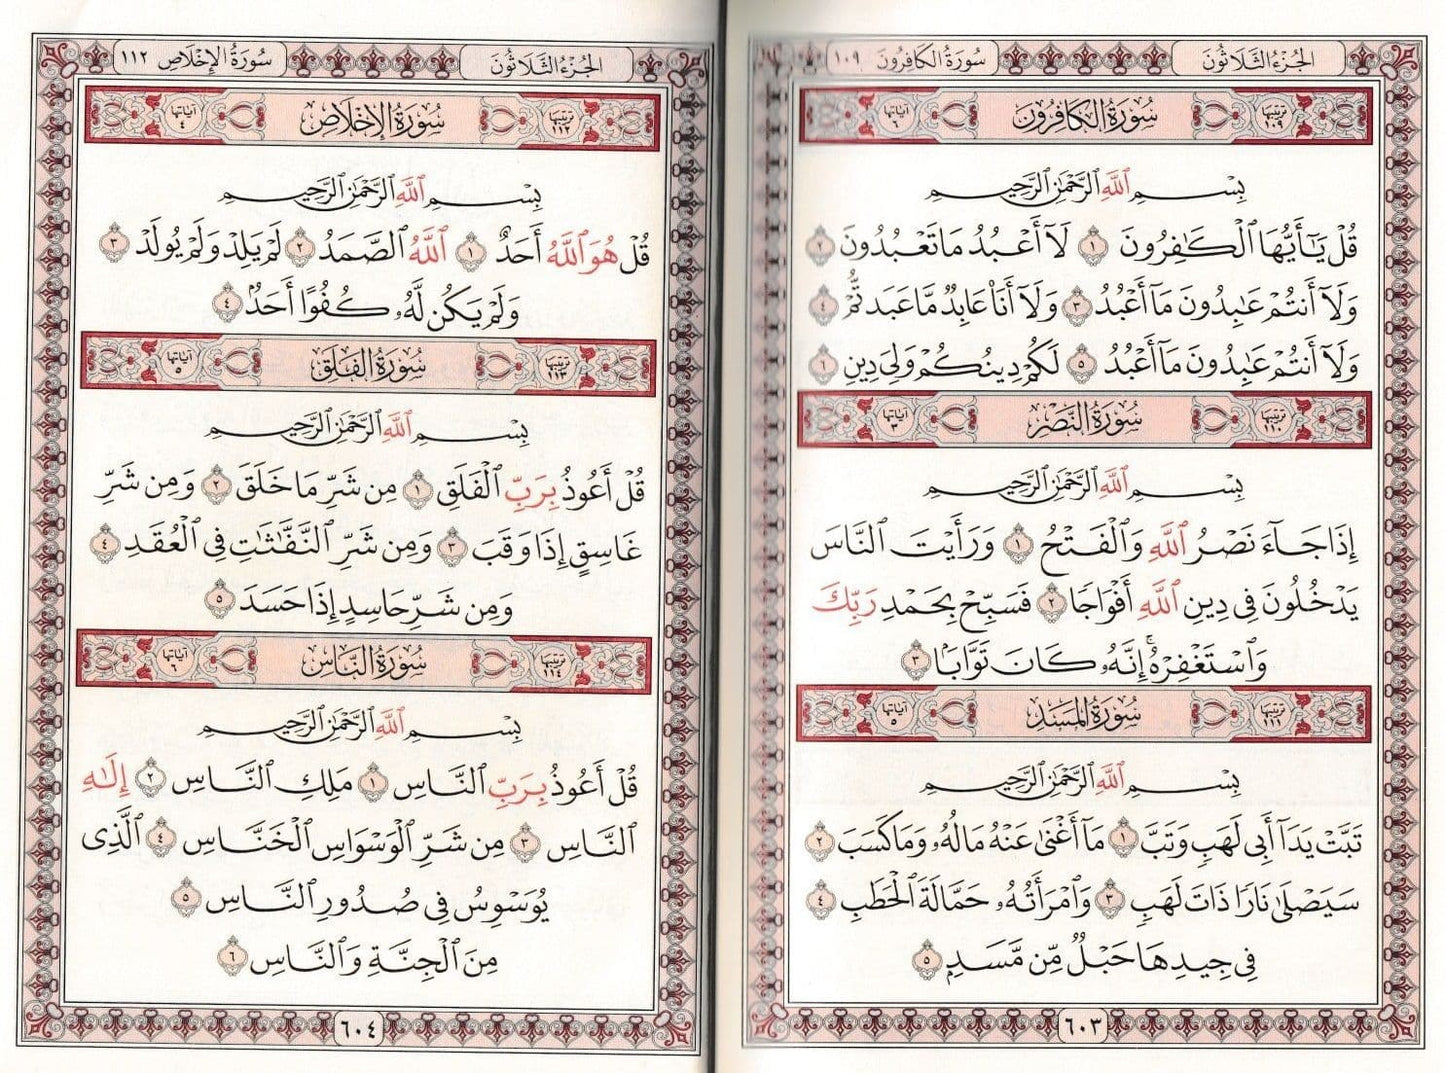 الجُزْءُ الثَّلَاثُونَ
سُورَةُ الكَافِرُونَ ١٠٩
ترتيبها ١٠٩ سُورَةُ الكَافِرُونَ آياتها ٦
بِسْمِ ٱللَّهِ ٱلرَّحْمَٰنِ ٱلرَّحِيمِ
قُلْ يَٰٓأَيُّهَا ٱلْكَٰفِرُونَ ١ لَآ أَعْبُدُ مَا تَعْبُدُونَ ٢
وَلَآ أَنتُمْ عَٰبِدُونَ مَآ أَعْبُدُ ٣ وَلَآ أَنَا۠ عَابِدٌ مَّا عَبَدتُّمْ ٤
وَلَآ أَنتُمْ عَٰبِدُونَ مَآ أَعْبُدُ ٥ لَكُمْ دِينُكُمْ وَلِيَ دِينِ ٦
ترتيبها ١١٠ سُورَةُ النَّصْرِ آياتها ٣
بِسْمِ ٱللَّهِ ٱلرَّحْمَٰنِ ٱلرَّحِيمِ
إِذَا جَآءَ نَصْرُ ٱللَّهِ وَٱلْفَتْحُ ١ وَرَأَيْتَ ٱلنَّاسَ
يَدْخُلُونَ فِي دِينِ ٱللَّهِ أَفْوَاجًا ٢ فَسَبِّحْ بِحَمْدِ رَبِّكَ
وَٱسْتَغْفِرْهُۚ إِنَّهُۥ كَانَ تَوَّابَۢا ٣
ترتيبها ١١١ سُورَةُ المَسَدِ آياتها ٥
بِسْمِ ٱللَّهِ ٱلرَّحْمَٰنِ ٱلرَّحِيمِ
تَبَّتْ يَدَآ أَبِي لَهَبٍ وَتَبَّ ١ مَآ أَغْنَىٰ عَنْهُ مَالُهُۥ وَمَا كَسَبَ ٢
سَيَصْلَىٰ نَارًا ذَاتَ لَهَبٍ ٣ وَٱمْرَأَتُهُۥ حَمَّالَةَ ٱلْحَطَبِ ٤
فِي جِيدِهَا حَبْلٌ مِّن مَّسَدٍۭ ٥
٦٠٣
الجُزْءُ الثَّلَاثُونَ
سُورَةُ الإِخْلَاصِ ١١٢
ترتيبها ١١٢ سُورَةُ الإِخْلَاصِ آياتها ٤
بِسْمِ ٱللَّهِ ٱلرَّحْمَٰنِ ٱلرَّحِيمِ
قُلْ هُوَ ٱللَّهُ أَحَدٌ ١ ٱللَّهُ ٱلصَّمَدُ ٢ لَمْ يَلِدْ وَلَمْ يُولَدْ ٣
وَلَمْ يَكُن لَّهُۥ كُفُوًا أَحَدٌۢ ٤
ترتيبها ١١٣ سُورَةُ الفَلَقِ آياتها ٥
بِسْمِ ٱللَّهِ ٱلرَّحْمَٰنِ ٱلرَّحِيمِ
قُلْ أَعُوذُ بِرَبِّ ٱلْفَلَقِ ١ مِن شَرِّ مَا خَلَقَ ٢ وَمِن شَرِّ
غَاسِقٍ إِذَا وَقَبَ ٣ وَمِن شَرِّ ٱلنَّفَّٰثَٰتِ فِي ٱلْعُقَدِ ٤
وَمِن شَرِّ حَاسِدٍ إِذَا حَسَدَ ٥
ترتيبها ١١٤ سُورَةُ النَّاسِ آياتها ٦
بِسْمِ ٱللَّهِ ٱلرَّحْمَٰنِ ٱلرَّحِيمِ
قُلْ أَعُوذُ بِرَبِّ ٱلنَّاسِ ١ مَلِكِ ٱلنَّاسِ ٢ إِلَٰهِ
ٱلنَّاسِ ٣ مِن شَرِّ ٱلْوَسْوَاسِ ٱلْخَنَّاسِ ٤ ٱلَّذِي
يُوَسْوِسُ فِي صُدُورِ ٱلنَّاسِ ٥
مِنَ ٱلْجِنَّةِ وَٱلنَّاسِ ٦
٦٠٤